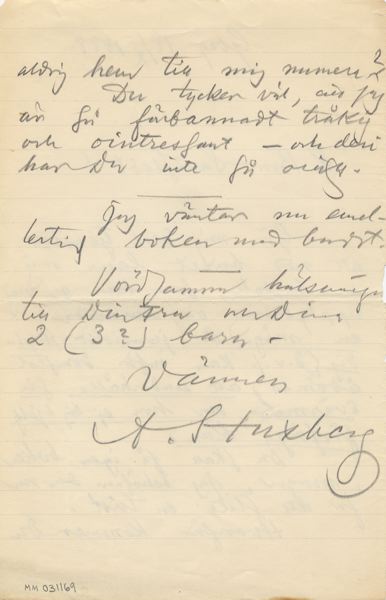 aldrig hem till mig numera?
Du tycker väl, att jag
är så förbannadt tråkig
och ointressant – och deri
har Du inte så orätt.
Jag väntar nu emel-
lertid boken med bandet.
Vördsamma hälsningar
till Din Fru och Dina
2 (3?) barn –
Vännen
A. Stuxberg
MM 031169